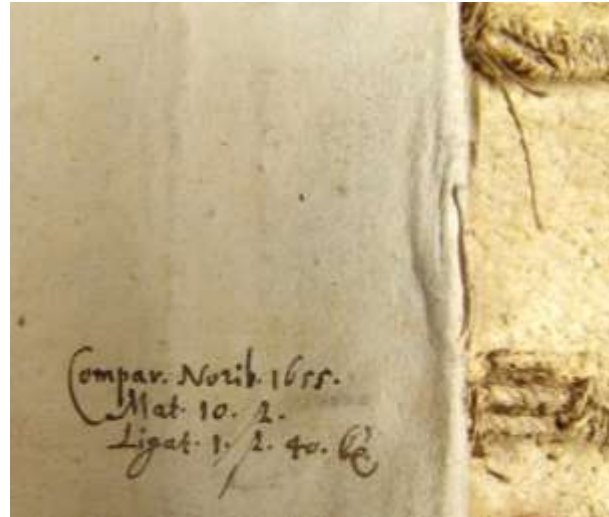 Compar. Norib. 1655.
Mat. 10. 2.
Ligat. 1. 2. 40.